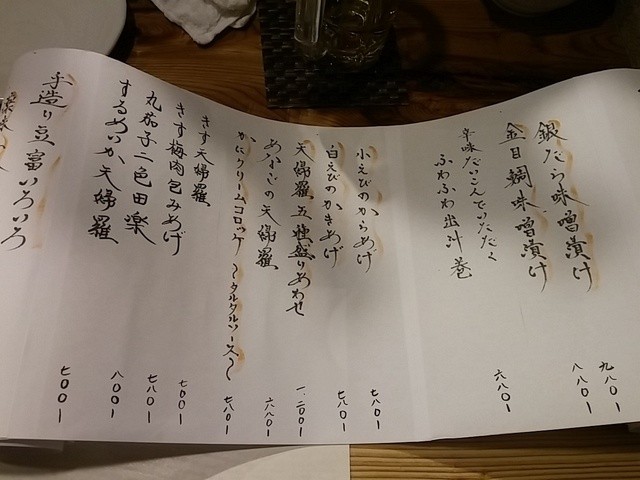 銀だら味噌漬け 九八〇ー
金目鯛味噌漬け 八八〇ー
辛味だいこんでいただく
ふわふわ出汁巻 六八〇ー
小えびのからあげ 七八〇ー
白えびのかきあげ 七八〇ー
天婦羅五種盛りあわせ 一、二〇〇ー
あなごの天婦羅 六八〇ー
かにクリームコロッケ 〜タルタルソース〜 七八〇ー
きす天婦羅 七〇〇ー
きす梅肉包みあげ 七八〇ー
丸茄子二色田楽 八〇〇ー
するめいか天婦羅 七〇〇ー
手造り豆富いろいろ